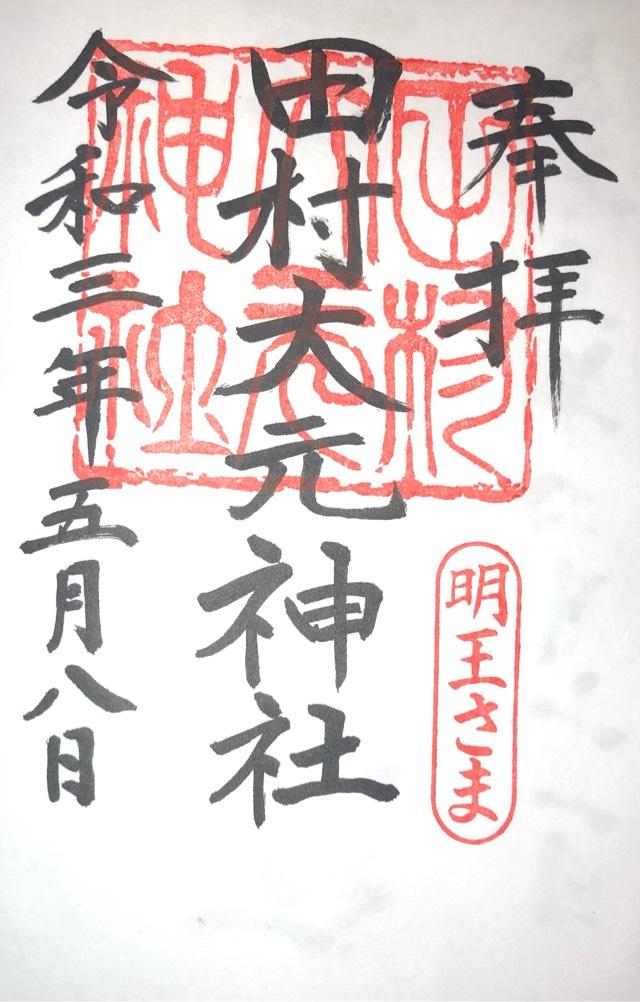 奉拝
明王さま
田村大元神社
田村大元神社
令和三年五月八日